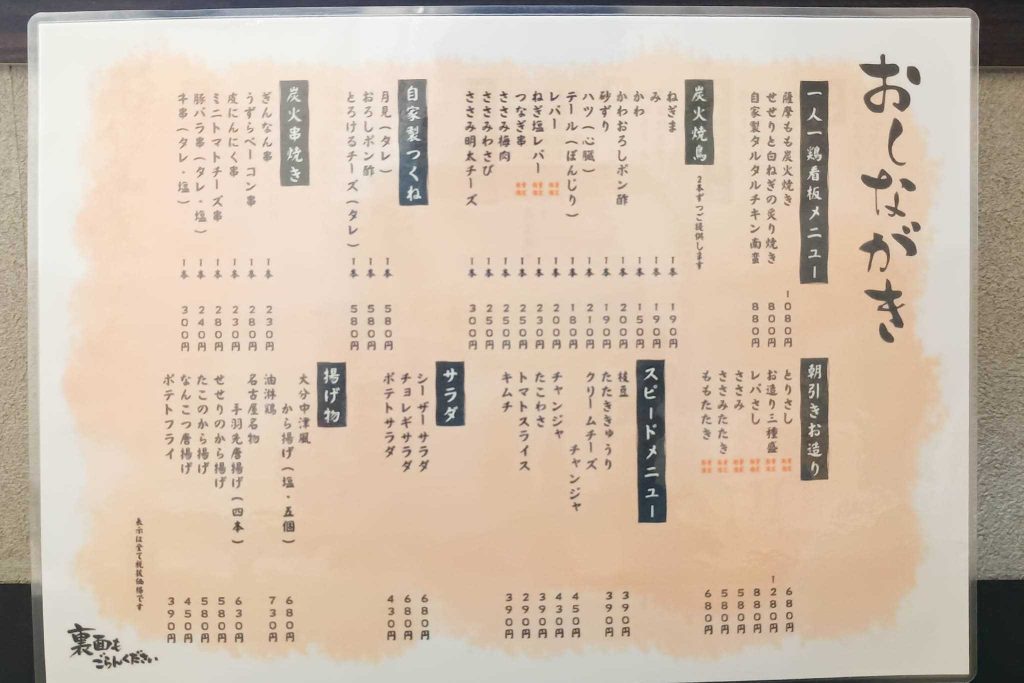 おしながき
一人一鶏看板メニュー
薩摩もも炭火焼き 1080円
せせりと白ねぎの炙り焼き 800円
自家製タルタルチキン南蛮 880円
炭火焼鳥 2本ずつご提供します
ねぎま 1本 190円
み 1本 190円
かわ 1本 150円
かわおろしポン酢 1本 200円
砂ずり 1本 190円
ハツ(心臓) 1本 210円
テール(ぼんじり) 1本 180円
レバー 1本 200円
ねぎ塩レバー 1本 230円
つなぎ串 1本 250円
ささみ梅肉 1本 250円
ささみわさび 1本 250円
ささみ明太チーズ 1本 300円
自家製つくね
月見(タレ) 1本 580円
おろしポン酢 1本 580円
とろけるチーズ(タレ) 1本 580円
炭火串焼き
ぎんなん串 1本 230円
うずらベーコン串 1本 280円
皮にんにく串 1本 230円
ミニトマトチーズ串 1本 280円
豚バラ串(タレ・塩) 1本 240円
ネ串(タレ・塩) 1本 300円
朝引きお造り
とりさし 680円
お造り三種盛 1280円
レバさし 880円
ささみ 580円
ささみたたき 580円
ももたたき 680円
スピードメニュー
枝豆 390円
たたききゅうり 390円
クリームチーズ
チャンジャ 450円
チャンジャ 430円
たこわさ 390円
トマトスライス 290円
キムチ 390円
サラダ
シーザーサラダ 680円
チョレギサラダ 680円
ポテトサラダ 430円
揚げ物
大分中津風
から揚げ(塩・五個) 680円
油淋鶏 730円
名古屋名物
手羽先唐揚げ(四本) 630円
せせりのから揚げ 580円
たこのから揚げ 580円
なんこつ唐揚げ 450円
ポテトフライ 390円
表示は全て税抜価格です
裏面も
ごらんください